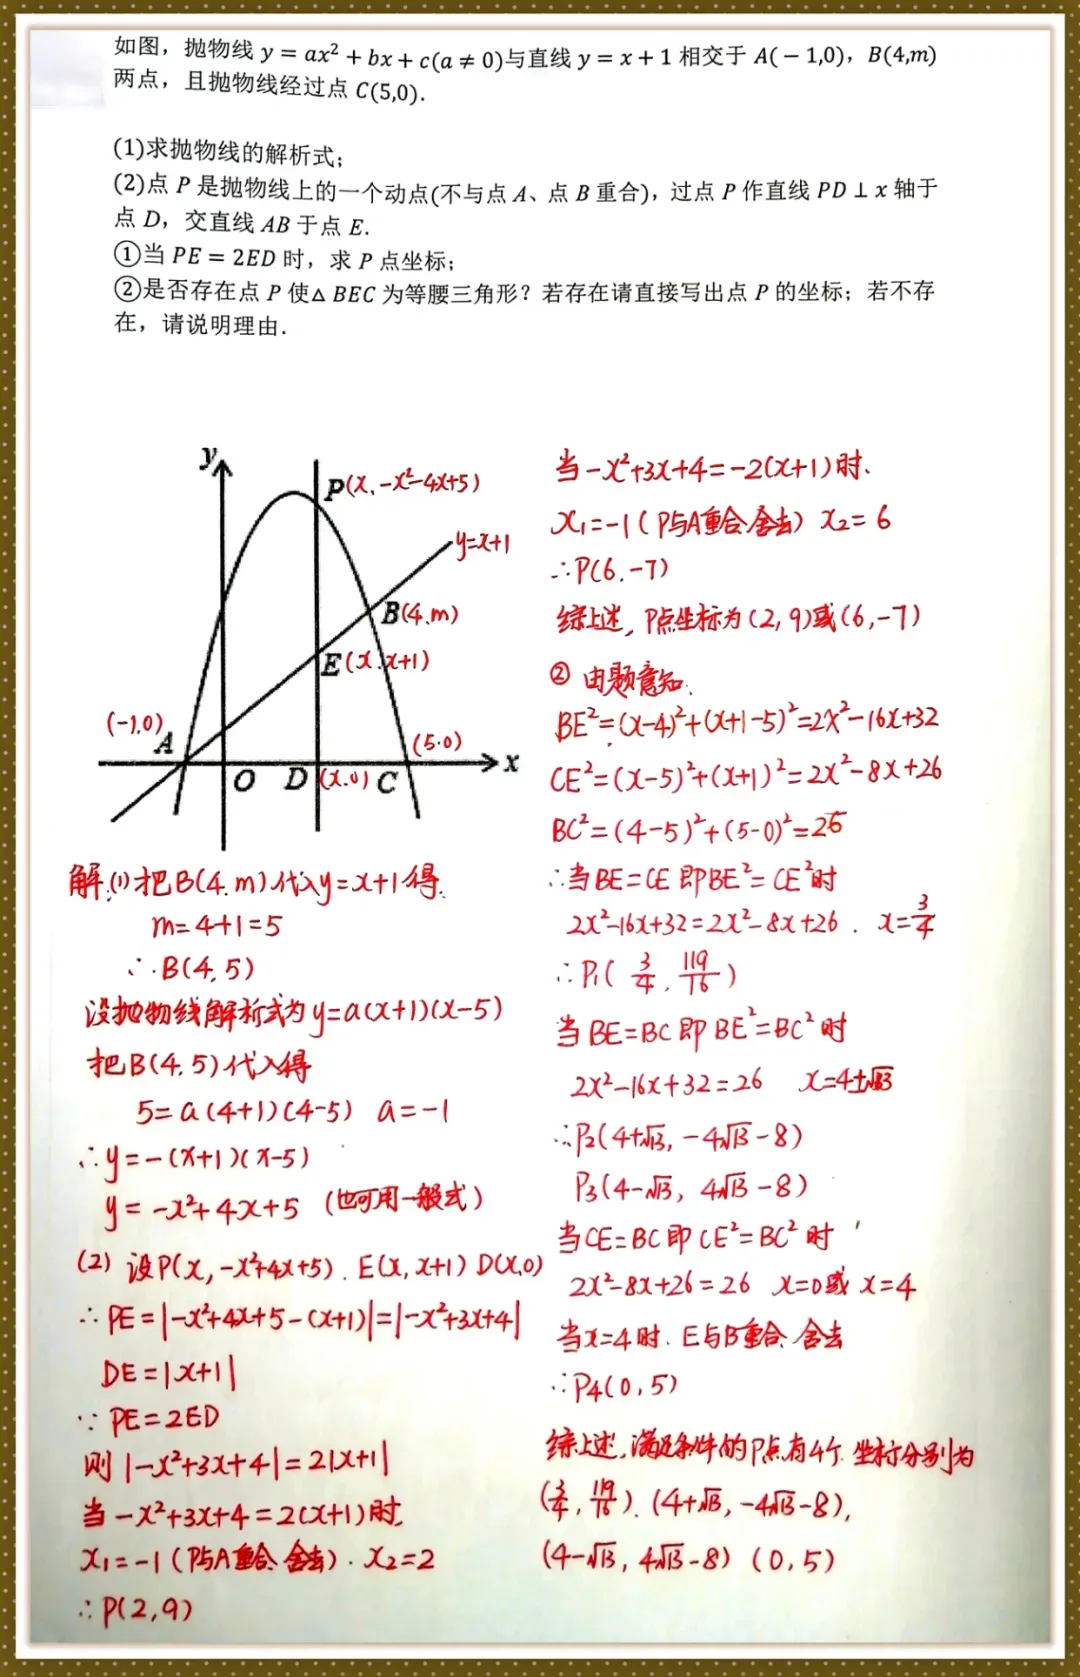 如图，抛物线 y = ax² + bx + c(a ≠ 0)与直线 y = x + 1 相交于 A(− 1,0)，B(4,m)
两点，且抛物线经过点 C(5,0).
(1)求抛物线的解析式；
(2)点 P 是抛物线上的一个动点(不与点 A、点 B 重合)，过点 P 作直线 PD ⊥ x 轴于
点 D，交直线 AB 于点 E.
①当 PE = 2ED 时，求 P 点坐标；
②是否存在点 P 使△ BEC 为等腰三角形？若存在请直接写出点 P 的坐标；若不存
在，请说明理由.
y
P(x, -x²-4x+5)
y=x+1
B(4,m)
E(x, x+1)
(-1,0)
A
(5,0)
x
O
D
(x,0)
C
解:(1)把B(4,m)代入y=x+1得,
m=4+1=5
∴B(4,5)
设抛物线解析式为y=a(x+1)(x-5)
把B(4,5)代入得
5=a(4+1)(4-5) a=-1
∴y=-(x+1)(x-5)
y=-x²+4x+5 (也可用一般式)
(2) 设P(x, -x²+4x+5). E(x, x+1) D(x,0)
∴PE=|-x²+4x+5-(x+1)|=|-x²+3x+4|
DE=|x+1|
∵PE=2ED
则|-x²+3x+4|=2|x+1|
当-x²+3x+4=2(x+1)时,
x₁=-1(P与A重合,舍去). x₂=2
∴P(2,9)
当-x²+3x+4=-2(x+1)时,
x₁=-1(P与A重合舍去) x₂=6
∴P(6,-7)
综上述, P点坐标为(2,9)或(6,-7)
② 由题意知,
BE²=(x-4)²+(x+1-5)²=2x²-16x+32
CE²=(x-5)²+(x+1)²=2x²-8x+26
BC²=(4-5)²+(5-0)²=26
∴当BE=CE即BE²=CE²时
2x²-16x+32=2x²-8x+26. x=3/4
∴P₁(3/4, 119/16)
当BE=BC即BE²=BC²时
2x²-16x+32=26 x=4±√13
∴P₂(4+√13, -4√13-8)
P₃(4-√13, 4√13-8)
当CE=BC即CE²=BC²时
2x²-8x+26=26 x=0或x=4
当x=4时, E与B重合,舍去
∴P₄(0,5)
综上述,满足条件的P点有4个,坐标分别为
(3/4, 119/16). (4+√13, -4√13-8),
(4-√13, 4√13-8) (0,5)